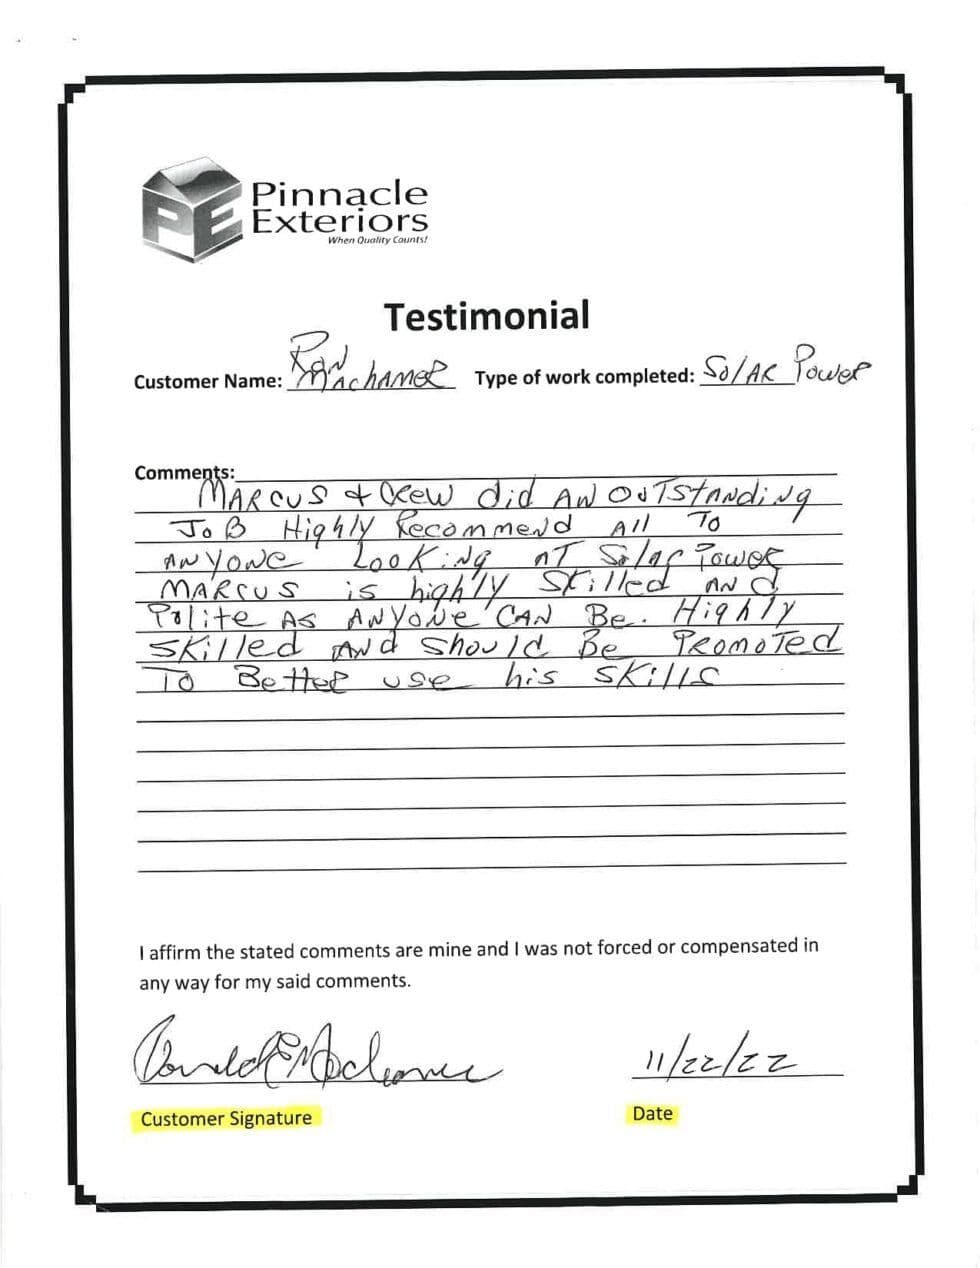 PE
Pinnacle
Exteriors
When Quality Counts!
Testimonial
Customer Name: Ron Machamer Type of work completed: Solar Power
Comments:
Marcus & Crew did an outstanding
Job Highly Recommend All To
Anyone Looking at Solar Power
Marcus is highly skilled and
Polite as anyone can be. Highly
skilled and should be promoted
to better use his skills
I affirm the stated comments are mine and I was not forced or compensated in
any way for my said comments.
Ronald E Machamer 11/22/22
Customer Signature Date